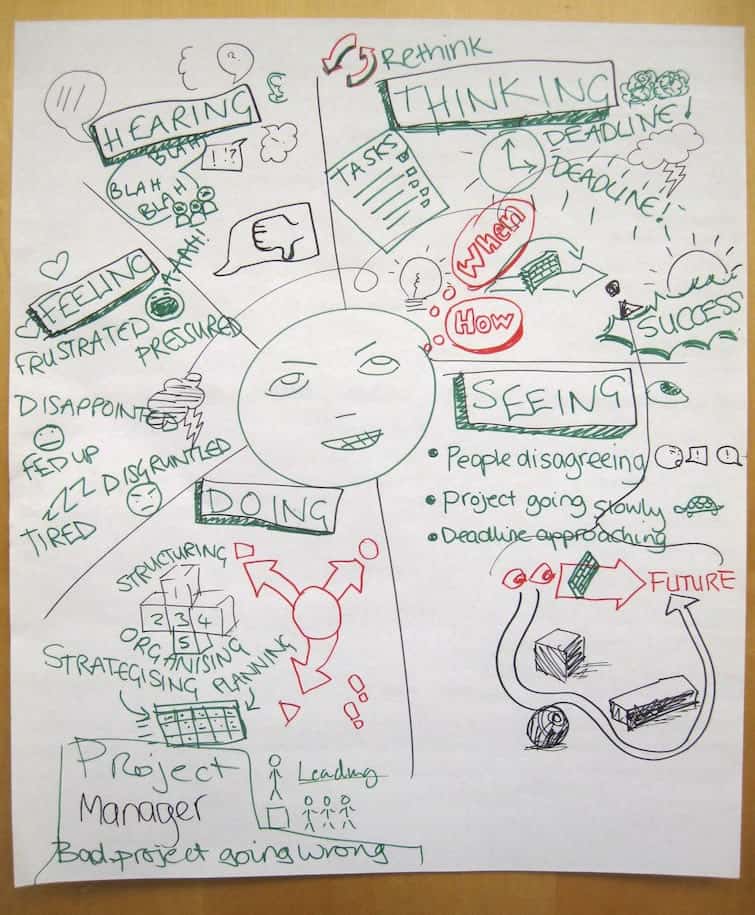 Rethink
HEARING
THINKING
BLAH
BLAH
BLAH
!!?
AAAH!
TASKS
DEADLINE!
DEADLINE!
When
How
SUCCESS
FEELING
FRUSTRATED
PRESSURED
DISAPPOINTED
FED UP
DISGRUNTLED
ZZZ
TIRED
SEEING
• People disagreeing
• Project going slowly
• Deadline approaching
FUTURE
DOING
STRUCTURING
1
2 3 4
5
ORGANISING
STRATEGISING
PLANNING
Project
Manager
Leading
Bad project going wrong